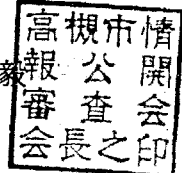 毅
高槻市情
報公開
審査会
会長之印